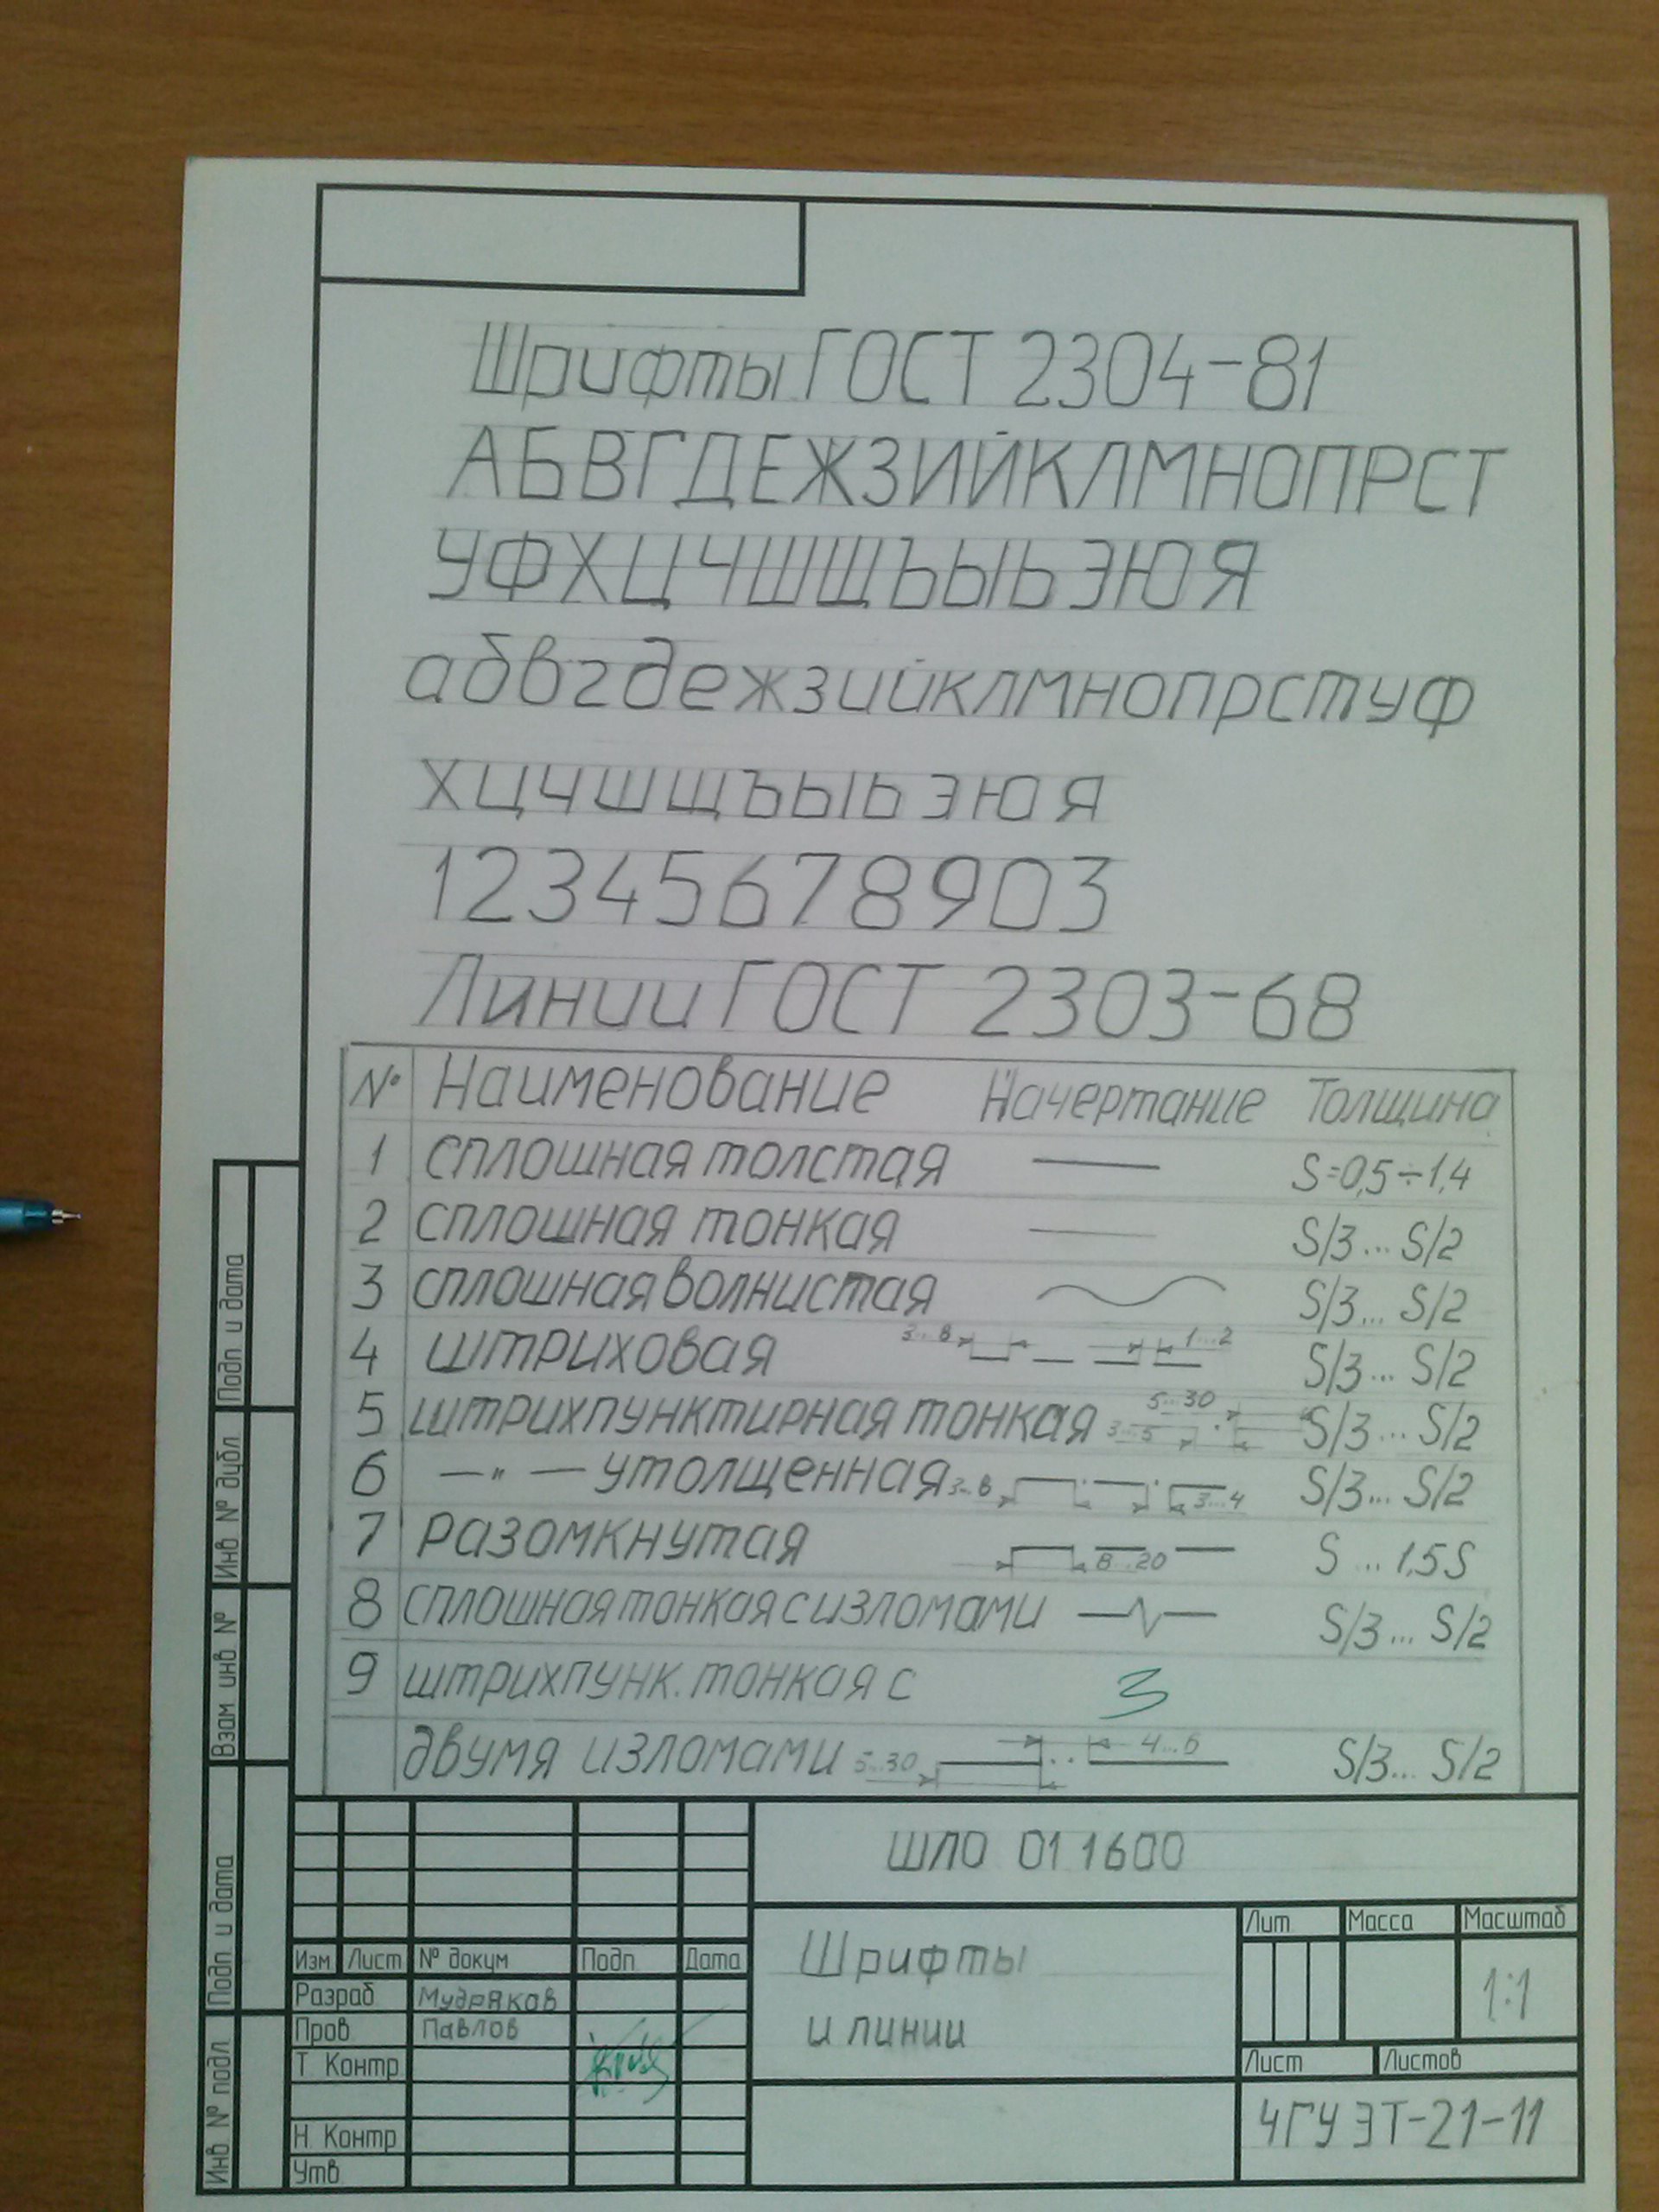 Шрифты ГОСТ 2304-81
АБВГДЕЖЗИЙКЛМНОПРСТ
УФХЦЧШЩЪЫЬЭЮЯ
абвгдежзийклмнопрстуф
хцчшщъыьэюя
12345678903
Линии ГОСТ 2303-68
№ Наименование Начертание Толщина
1 сплошная толстая S=0,5÷1,4
2 сплошная тонкая S/3... S/2
3 сплошная волнистая S/3... S/2
4 штриховая 3...8 1...2 S/3... S/2
5 штрихпунктирная тонкая 5...30 3...5 S/3... S/2
6 —"— утолщенная 3...8 3...4 S/3... S/2
7 Разомкнутая 8...20 S ...1,5S
8 сплошная тонкая с изломами S/3... S/2
9 штрихпунк. тонкая с 3
двумя изломами 5...30 4...6 S/3... S/2
ШЛО 01 1600
Шрифты
и линии
Лит. Масса Масштаб
1:1
Лист Листов
ЧГУ ЭТ-21-11
Изм. Лист № докум Подп. Дата
Разраб Мудряков
Пров. Павлов
Т. Контр
Н. Контр
Утв.
Подп. и дата
Инв. № дубл
Взам. инв. №
Подп. и дата
Инв. № подл